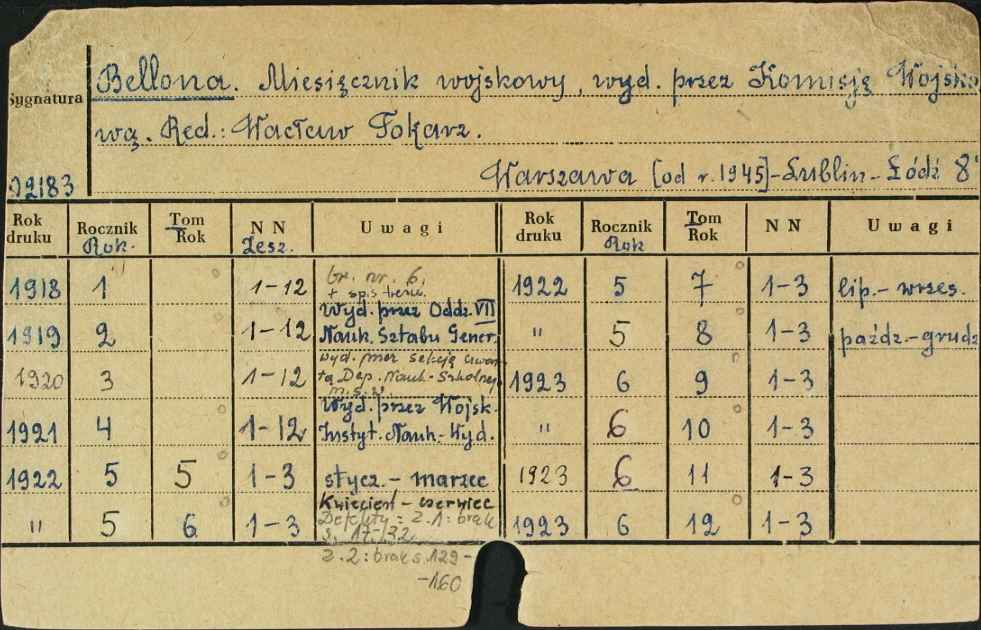 Bellona. Miesięcznik wojskowy, wyd. przez Komisję Wojsko
Sygnatura
wą. Red.: Wacław Tokarz.
Warszawa [od r. 1945]-Lublin-Łódź 8°
02183
Rok druku Rocznik Tom Rok N N Uwagi Rok druku Rocznik Tom Rok N N Uwagi
Rok. Zesz. Rok
1918 1 1-12 br. nr. 6, 1922 5 7 1-3 lip.- wrzes.
+ spis treści.
Wyd. przez Oddz. VII
1919 2 1-12 Nauk. Sztabu Gener. " 5 8 1-3 paźdz.-grudz
wyd. przez sekcję czwar
1920 3 1-12 tą Dep. Nauk.-Szkolnego 1923 6 9 1-3
Wyd. przez Wojsk.
1921 4 1-12 Instyt. Nauk.-Wyd. " 6 10 1-3
1922 5 5 1-3 stycz. - marzec 1923 6 11 1-3
Kwiecień - czerwiec
" 5 6 1-3 Defekty: z. 1: brak 1923 6 12 1-3
s. 17-32
z. 2: brak s. 129-
-160